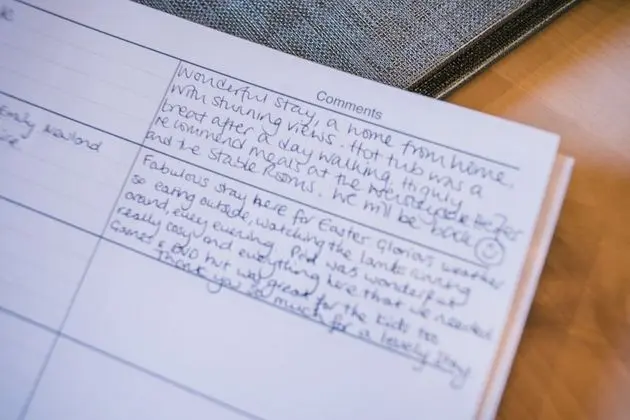 Comments
Wonderful stay, a home from home.
with stunning views. Hot tub was a
treat after a day walking. Highly
recommend meals at the
and the Stable Rooms. We will be back ☺
Emily
Fabulous stay here for Easter. Glorious weather
so eating outside, watching the lambs running
around, every evening. Pod was wonderful +
really cosy and everything here that we needed
Games & DVD hut was great for the kids too
Thank you so much for a lovely stay